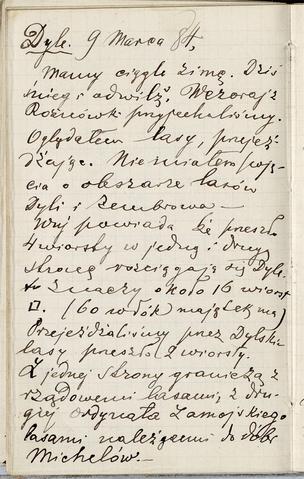 Dyle. 9 Marca 84,
Mamy ciągle zimę. Dziś
śnieg i odwilż. Wczoraj z
Rożnówk przyjechaliśmy.
Oglądałem lasy, przejeż
dżając. Nie miałem poję
cia o obszarze lasów
Dyli i Zembrowa —
Wuj powiada że przeszło
4 wiorsty w jedną i drugą
stronę rościągają się Dyle.
to znaczy około 16 wiorst
□. (60 włók) mają
Przejeżdżaliśmy przez Dylskie
lasy przeszło 2 wiorsty.
Z jednej strony graniczą z
rządowemi lasami, z dru-
giej Ordynata Zamojskiego
lasami należącemi do dóbr
Michelów. —